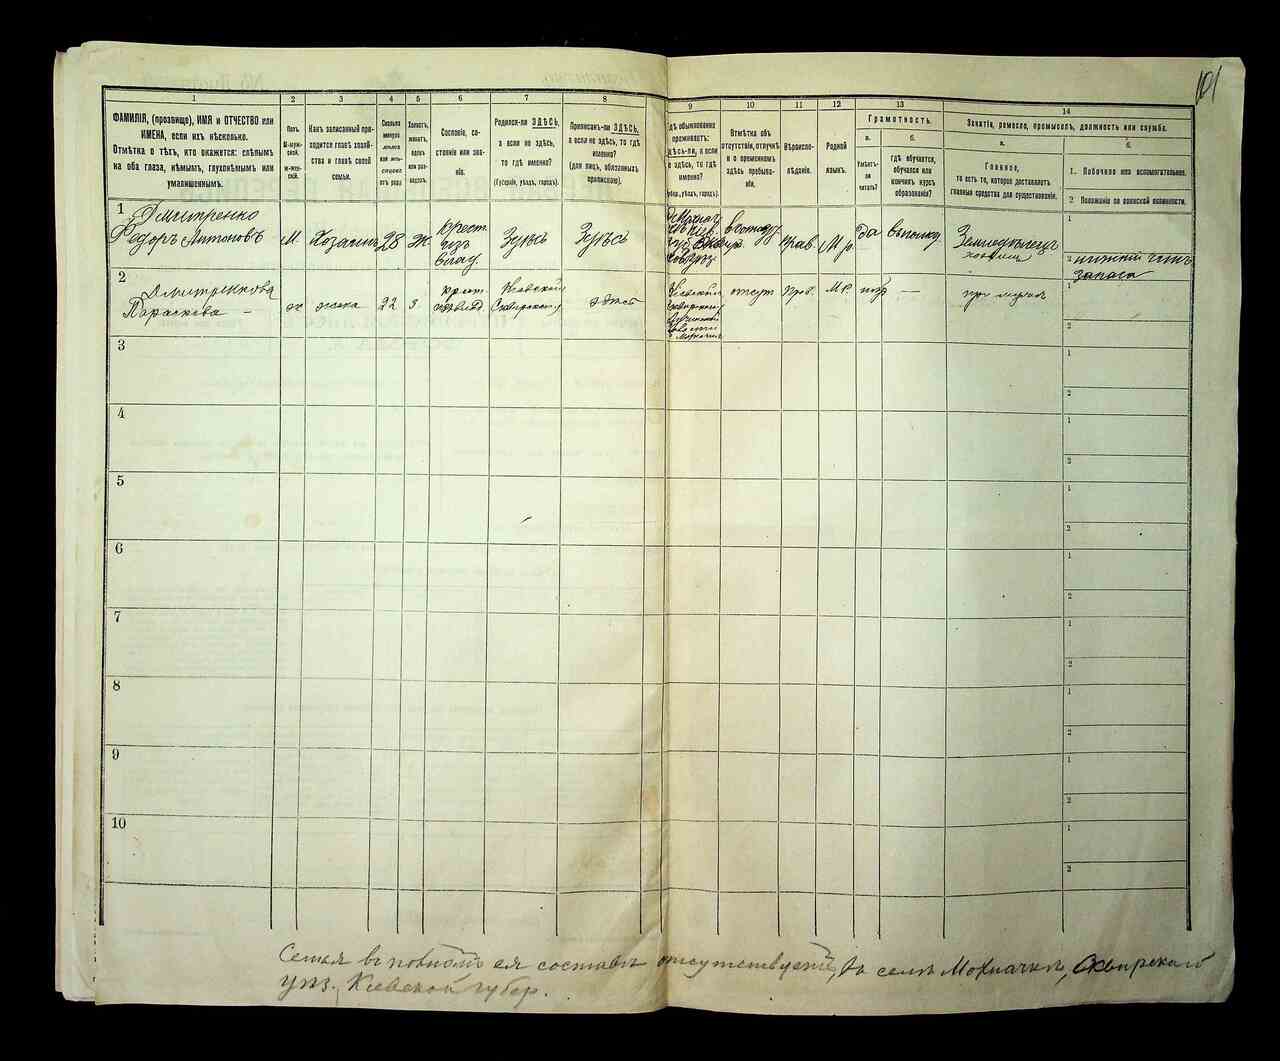 101
1
2
3
4
5
6
7
8
9
10
11
12
13
14
ФАМИЛІЯ, (прозвище), ИМЯ и ОТЧЕСТВО или
ИМЕНА, если ихъ нѣсколько.
Отмѣтка о тѣхъ, кто окажется: слѣпымъ
на оба глаза, нѣмымъ, глухонѣмымъ или
умалишеннымъ.
Полъ.
М-муж-
ской.
Ж-жен-
скій.
Какъ записанный при-
ходится главѣ хозяй-
ства и главѣ своей
семьи.
Сколько
минуло
лѣтъ
отъ роду
Холостъ,
женатъ,
вдовъ
или раз-
веденъ.
Сословіе, со-
стояніе или зва-
ніе.
Родился-ли ЗДѢСЬ,
а если не здѣсь,
то гдѣ именно?
(Губернія, уѣздъ, городъ).
Приписанъ-ли ЗДѢСЬ,
а если не здѣсь, то гдѣ
именно?
(для лицъ, обязанныхъ
припискою).
Гдѣ обыкновенно
проживаетъ:
здѣсь-ли, а если
не здѣсь, то гдѣ
именно?
(Губер., уѣздъ, городъ).
Отмѣтка объ
отсутствіи, отлучкѣ
и о временномъ
здѣсь пребыва-
ніи.
Вѣроиспо-
вѣданіе.
Родной
языкъ.
Грамотность.
а.
Умѣетъ-
ли
читать?
б.
гдѣ обучается,
обучался или
кончилъ курсъ
образованія?
Занятіе, ремесло, промыселъ, должность или служба.
а.
Главное,
то есть то, которое доставляетъ
главныя средства для существованія.
б.
1. Побочное или вспомогательное.
2 Положеніе по воинской повинности.
1
Дмитренко
Федоръ Антоновъ
М
Хозяинъ
28
Ж
крест.
изъ
влад.
отсут.
Прав.
М.р.
да
Земледѣлецъ
1
2 нижній чинъ
запаса
2
Дмитренкова
Параскева
ж
жена
22
з
Кіевской
Сквирской
здѣсь
отсут
Прав.
М.Р.
—
при мужѣ
1
2
3
1
2
4
1
2
5
1
2
6
1
2
7
1
2
8
1
2
9
1
2
10
1
2
Семья въ полномъ ея составѣ отсутствуетъ, въ селѣ Мохначкѣ, Сквирскаго
уѣз., Кіевской губер.